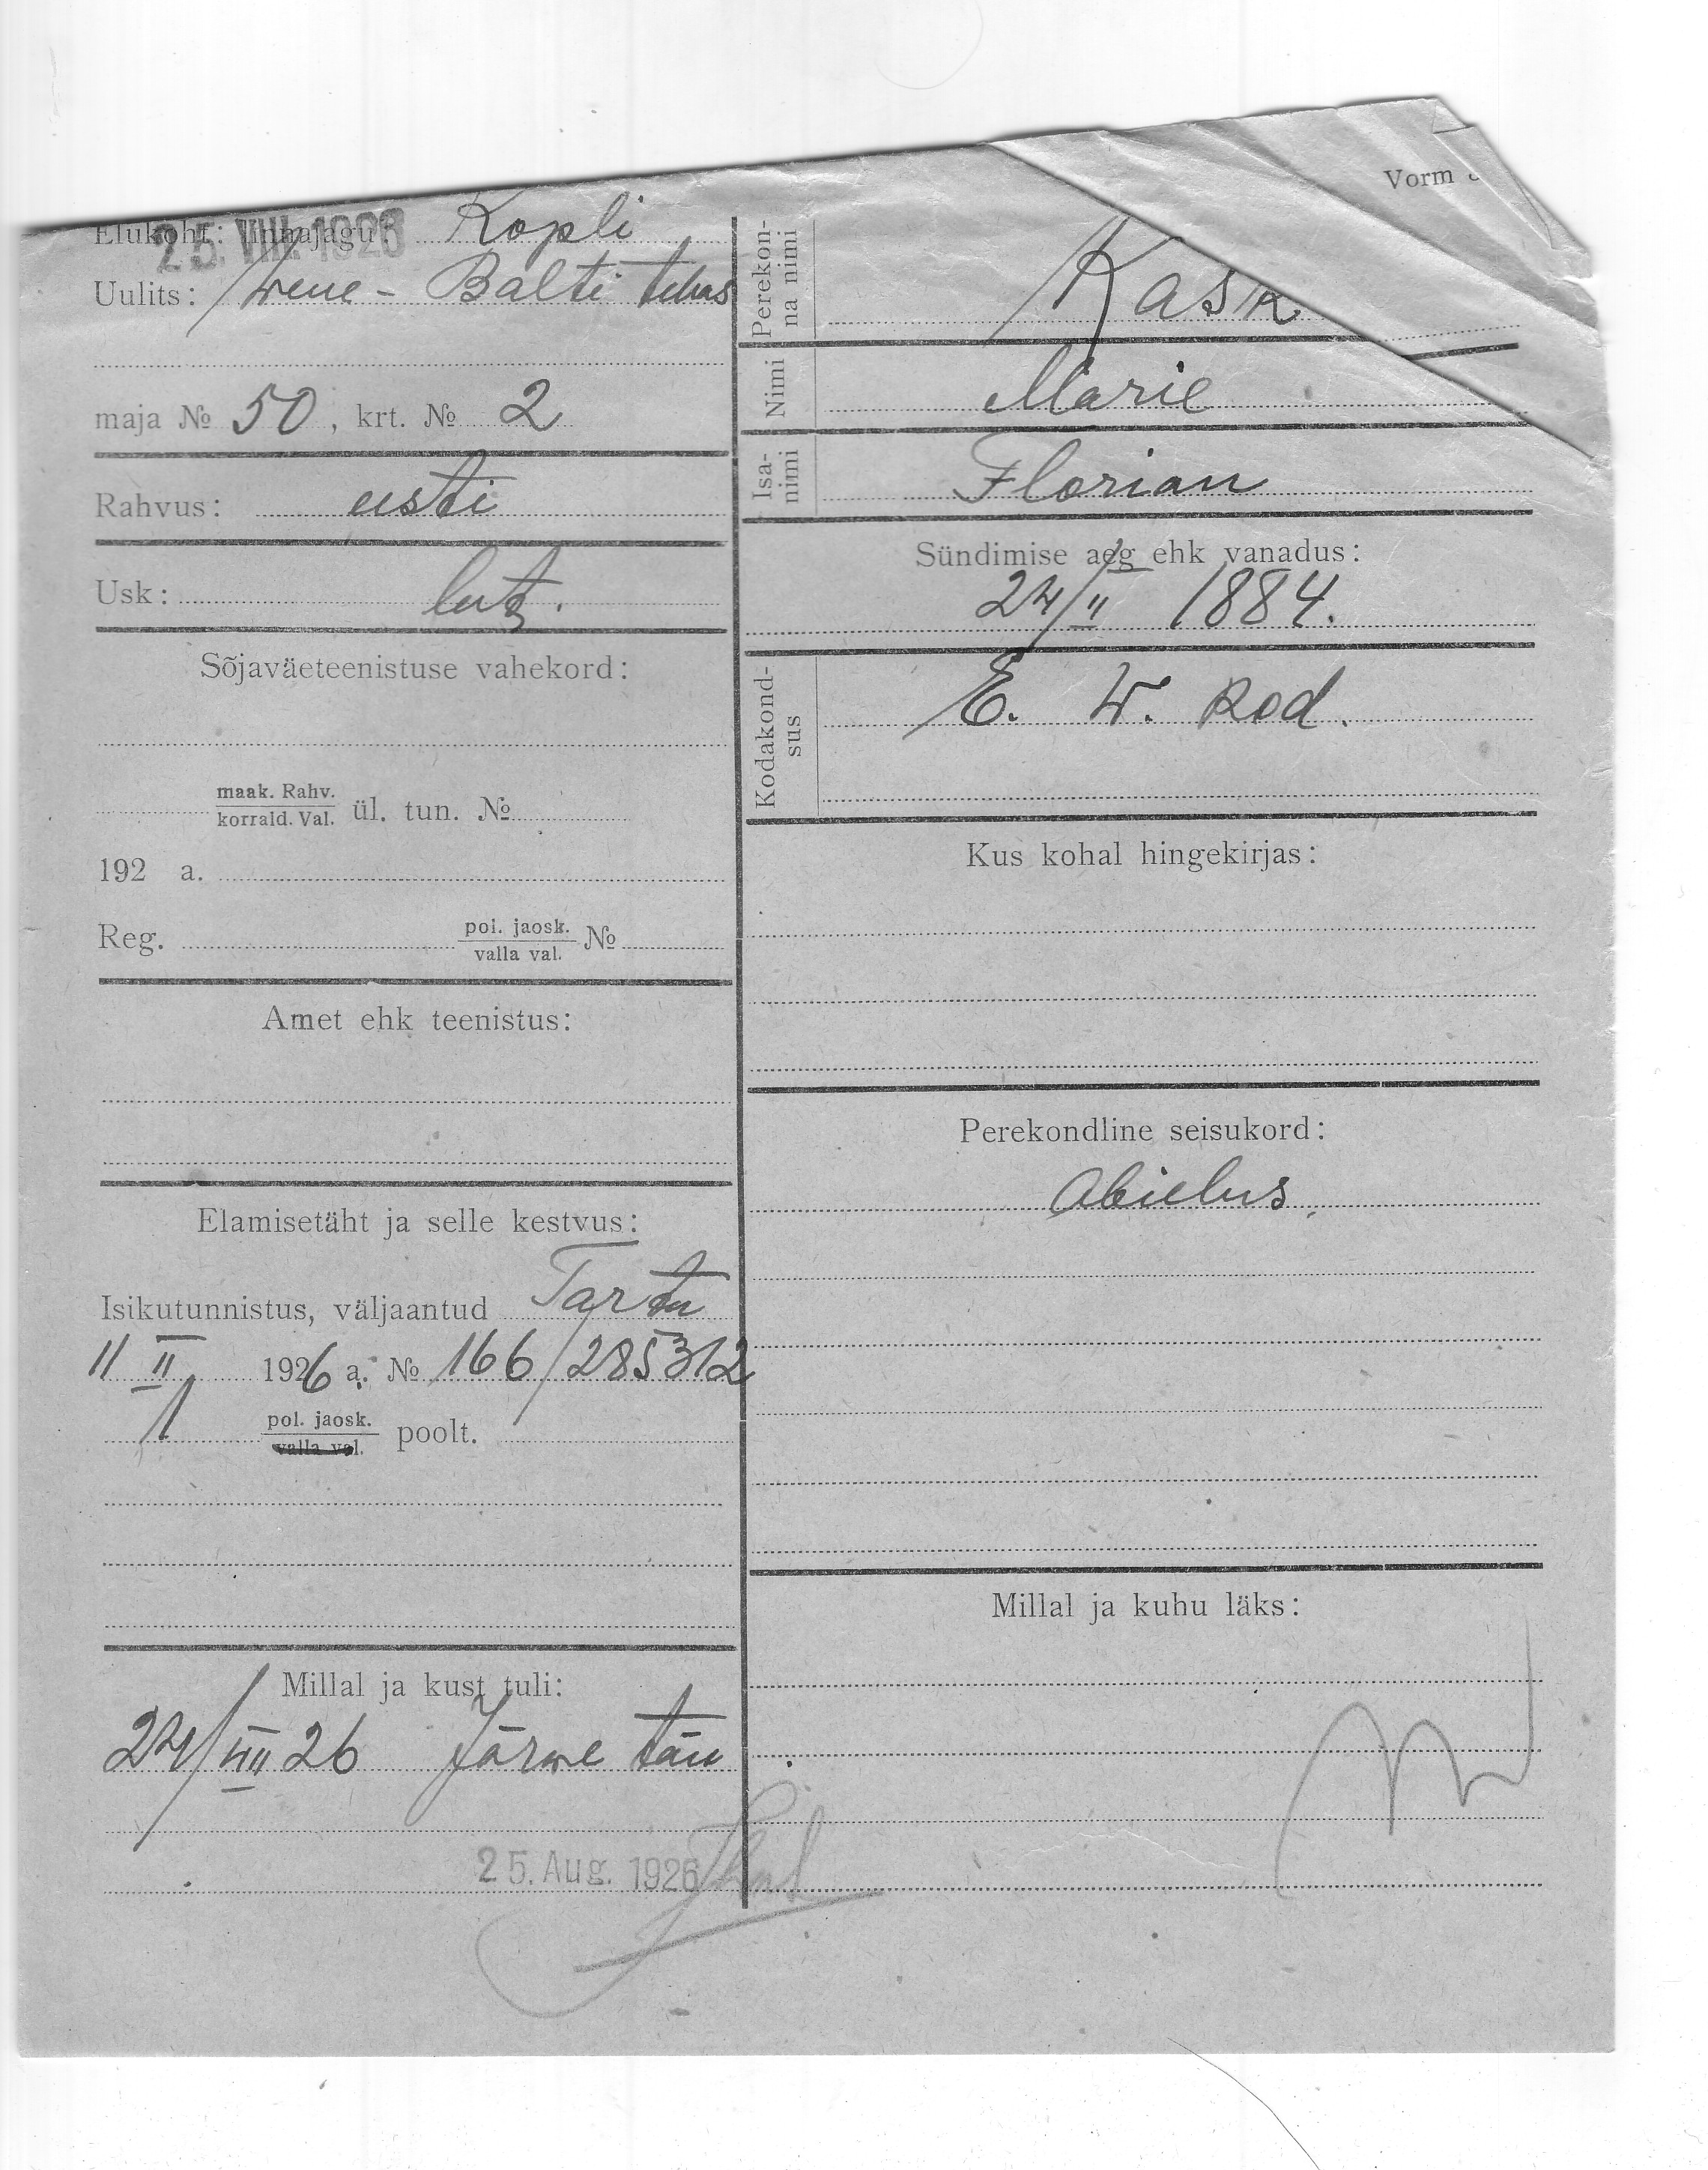 Vorm
Elukoht: linnajagu: Kopli
25. VIII. 1926
Uulits: Wene-Balti tehas
maja № 50, krt. № 2
Rahvus: eesti
Usk: lut.
Sõjaväeteenistuse vahekord:
maak. Rahv.
korrald. Val. ül. tun. №
192 a.
Reg. pol. jaosk.
valla val. №
Amet ehk teenistus:
Elamisetäht ja selle kestvus:
Isikutunnistus, väljaantud Tartu
11 II 1926 a. № 166/285312
1 pol. jaosk.
valla val. poolt.
Millal ja kust tuli:
24/VIII 26 Järwe tän
25. Aug. 1926
Perekon-
na nimi Kask
Nimi Marie
Isa-
nimi Florian
Sündimise aeg ehk vanadus:
24/II 1884.
Kodakond-
sus E. W. kod.
Kus kohal hingekirjas:
Perekondline seisukord:
abielus
Millal ja kuhu läks: